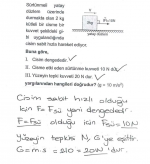 Sürtünmesiz yatay
düzlem üzerinde
durmakta olan 2 kg
kütleli bir cisme bir
kuvvet şekildeki gi-
bi uygulandığında
cisim sabit hızla hareket ediyor.
Buna göre,
I. Cisim dengededir.
II. Cisme etki eden sürtünme kuvveti 10 N dur.
III. Yüzeyin tepki kuvveti 20 N dur.
yargılarından hangileri doğrudur?
2kg
yatay düzlem
Cisim sabit hızlı olduğu
için F = Fsü yani dengededir.
F = Fsü olduğu için Fsü = 10N
Yüzeyin tepkisi N, G'ye eşittir.
G = m.g = 2.10 = 20N 'dur.